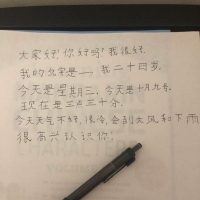 大家好!你好吗?我很好.
我的名字是——,我二十四岁.
今天是星期三,今天是十月九号.
现在是三点三十分.
今天天气不好,很冷,会刮大风和下雨
很高兴认识你!